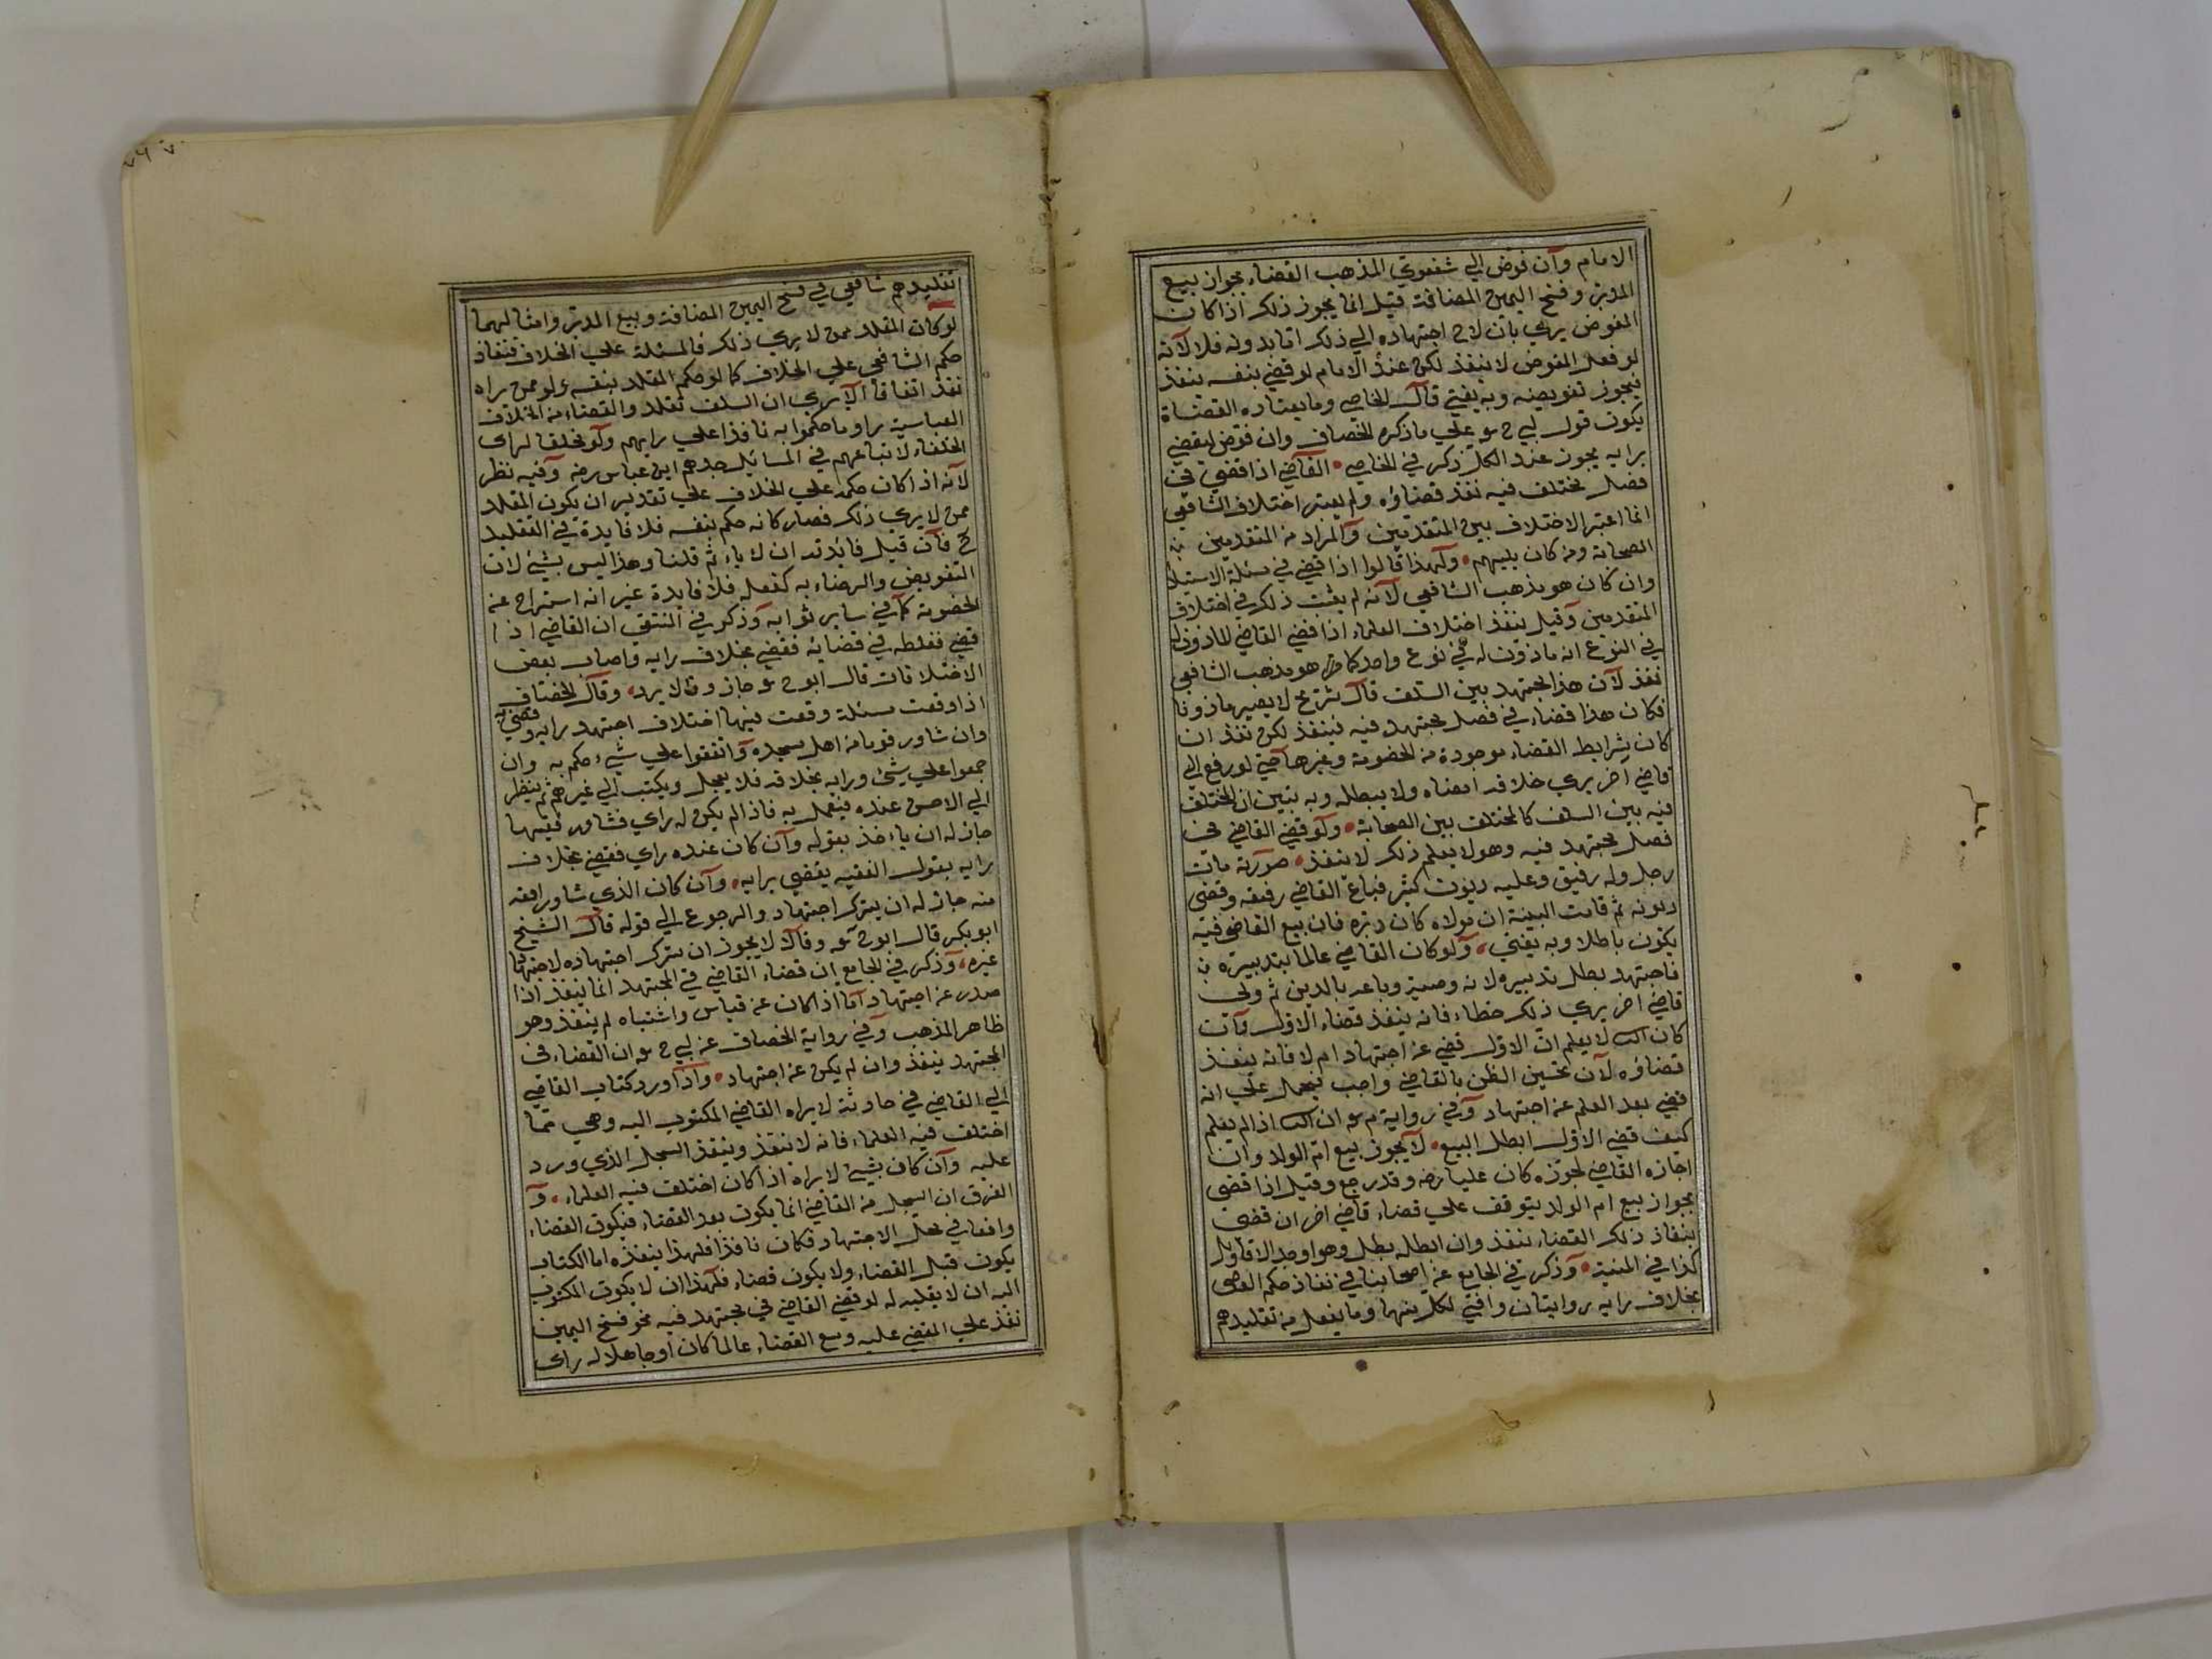 الامام وآن فوض الي شفعوي المذهب القضاء بجواز بيع
المدبر وفسخ اليمين المضافة قيل انما يجوز ذلك اذا كان
المفوض يري بان لاح اجتهاده الي ذلك اما بدونه فلا لآنه
لو فعل المفوض لا ينفذ لكن عند الامام لو قضي بنفسه ينفذ
فيجوز تفويضه وبه يفتي قال الخاصي وما يعتاده القضاة
يكون قول لبي ح سو علي ما ذكره الخصاف وان فوض ليقضي
برايه يجوز عند الكل ذكر في الخاصي القآضي اذا قضي في
فصل مختلف فيه نفذ قضاؤه ولم يعتبر اختلاف الشافعي
انما اعتبر الاختلاف بين المتقدمين وآلمراد من المتقدمين من
الصحابة ومن كان يليهم ولهذا قالوا اذا قضي في مسئلة الاستيلا
وان كان هو مذهب الشافعي لآنه لم يثبت ذلك في اختلاف
المتقدمين وقيل ينفذ اختلاف العلماء اذا قضي القاضي للماذون له
في النوع انه ماذون له في نوع واحد كما هو مذهب الشافعي
نفذ لآن هذا المجتهد بين السلف قآل شريح لا يصير ماذونا
فكان هذا قضاء في فصل مجتهد فيه فينفذ لكن نفذ ان
كان شرايط القضاء موجودة من الخصومة وغيرها حتي لو رفع الي
قاضي اخر يري خلافه امضاه ولا يبطله وبه تبين ان المختلف
فيه بين السلف كالمختلف بين الصحابة ولو قضي القاضي في
فصل مجتهد فيه وهو لا يعلم ذلك لا ينفذ صورته مات
رجل وله رقيق وعليه ديون كثير فباع القاضي رقيقه وقضي
ديونه ثم قامت البينة ان مولاه كان دبره فان بيع القاضي فيه
يكون باطلا وبه يفتي ولو كان القاضي عالما بتدبيره من
فاجتهد بطل تدبيره لانه وصية وباعه بالدين ثم ولي
قاضي اخر يري ذلك خطاء فانه ينفذ قضاء الاول وآن
كان لا يعلم ان الاول قضي عن اجتهاد ام لا فانه ينفذ
قضاؤه لآن تحسين الظن بالقاضي واجب فيحمل علي انه
قضي بعد العلم عن اجتهاد وفي رواية م سو ان اذا لم يعلم
كيف قضي الاول ابطل البيع لآ يجوز بيع ام الولد وان
اجازه القاضي لجوزه كان عليا رضه وقد رجع وقيل اذا قضي
بجواز بيع ام الولد يتوقف علي قضاء قاضي اخر ان قضي
بنفاذ ذلك القضاء ينفذ وان ابطله يبطل وهو اوجه الاقاويل
كذا في المنية وذكر في الجامع عن اصحابنا في نفاذ حكم القاضي
بخلاف رايه روايتان وافتي لكل منهما وما يفعل من تقليدهم
تقليدهم شافعي في فسخ اليمين المضافة وبيع المدبر وامثالهما
لو كان المقلد ممن لا يري ذلك فالمسئلة علي الخلاف فنفاذ
حكم الشافعي علي الخلاف كما لو حكم المقلد بنفسه ولو ممن راه
نفذ اتفاقا الآ يري ان السلف تقلدوا القضاء من الخلاف
العباسية وما حكموا به نافذا علي رايهم ولو مخلفا لراي
الخلفاء لاتباعهم في المسائل جدهم ابن عباس رضه وفيه نظر
لآنه اذا كان حكمه علي الخلاف علي تقدير ان يكون المقلد
ممن لا يري ذلك فصار كانه حكم بنفسه فلا فايدة في التقليد
ح فآن قيل فائدته ان لا ياثم قلنا وهذا ليس بشئ لان
التفويض والرضاء به كفعله فلا فايدة غير انه استراح عن
الخصومة كما في ساير ثوابه وذكر في المنتقي ان القاضي اذا
قضي فغلط في قضائه فقضي بخلاف رايه واصاب بعض
الاختلافات قال ابو ح سو جاز وقالا يرد وقآل الخصاف
اذا وقعت مسئلة وقعت فيها اختلاف اجتهد رايه وقضي به
وان شاور قوما من اهل مسجده وآتفقوا علي شئ حكم به وان
جمعوا علي شئ ورايه بخلافه فلا يعجل ويكتب الي غيرهم ثم ينظر
الي الاحسن عنده فيعمل به فاذا لم يكن له راي فشاور فقيها
جاز له ان ياخذ بقوله وآن كان عنده راي فقضي بخلاف
رايه بقول الفقيه يقضي برايه وآن كان الذي شاور افقه
منه جاز له ان يترك اجتهاد والرجوع الي قوله قآل الشيخ
ابو بكر قال ابو ح سو وقالا لا يجوز ان يترك اجتهاده لاجتهاد
غيره وذكر في الجامع ان قضاء القاضي في المجتهد انما ينفذ اذا
صدر عن اجتهاد آما اذا كان عن قياس واشتباه لم ينفذ وهو
ظاهر المذهب وفي رواية الخصاف عن لبي ح سو ان القضاء في
المجتهد ينفذ وان لم يكن عن اجتهاد واذا ورد كتاب القاضي
الي القاضي في حادثة لا يراه القاضي المكتوب اليه وهي مما
اختلف فيه العلماء فانه لا ينفذ وينفذ السجل الذي ورد
عليه وآن كان بشئ لا يراه اذا كان اختلف فيه العلماء وآ
الفرق ان السجل من القاضي انما يكون بعد القضاء فيكون القضاء
واقعا في محل الاجتهاد فكان نافذا فلهذا ينفذه اما الكتاب
يكون قبل القضاء ولا يكون قضاء فلهذا ان لا يكون المكتوب
اليه ان لا يقلبه له لو قضي القاضي في مجتهد فيه نحو فسخ اليمين
نفذ علي المقضي عليه وسع القضاء عالما كان او جاهلا له راي